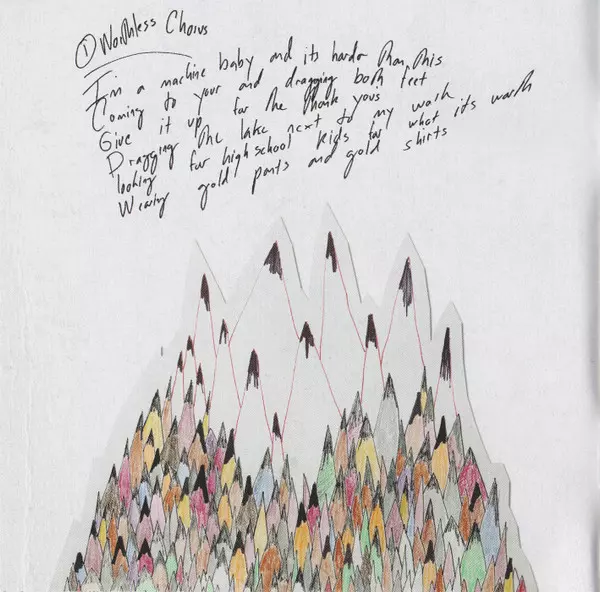 ① Worthless Chorus
I'm a machine baby and its harder than this
Coming to your and dragging both feet
Give it up for the thank yous
Dragging the lake next to my work
looking for high school kids for what its worth
Wearing gold pants and gold shirts